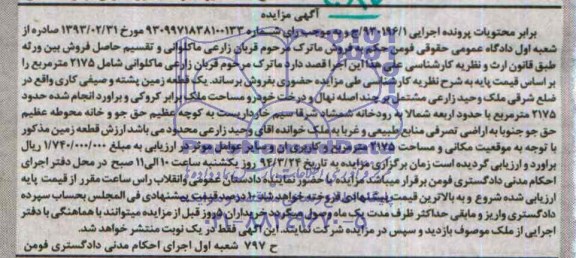 آگهی مزایده
برابر محتویات پرونده اجرایی ۱۹۶/۱ ج و به موجب رای شماره ۹۳۰۹۹۷۱۸۳۸۱۰۰۱۳۳ مورخ ۱۳۹۳/۰۲/۳۱ صادره از
شعبه اول دادگاه عمومی حقوقی فومن حکم به فروش ماترک مرحوم قربان زارعی ماکلوانی و تقسیم حاصل فروش بین ورثه
طبق قانون ارث و نظریه کارشناسی علی هذا این اجرا قصد دارد ماترک مرحوم قربان زارعی ماکلوانی شامل ۲۱۷۵ مترمربع را
بر اساس قیمت پایه به شرح نظریه کارشناسی طی مزایده حضوری بفروش برساند. یک قطعه زمین پشته و صیفی کاری واقع در
ضلع شرقی ملک وحید زارعی مشتمل بر چند اصله نهال و درخت خودرو مساحت ملک برابر کروکی و براورد انجام شده حدود
۲۱۷۵ مترمربع با حدود اربعه شمالا به رودخانه شمشاد شرقا سیم خارداریست به کوچه عظیم حق جو و خانه محوطه عظیم
حق جو جنوبا به اراضی تصرفی منابع طبیعی و غربا به ملک خوانده اقای وحید زارعی محدود می باشد ارزش قطعه زمین مذکور
با توجه به موقعیت مکانی و مساحت ۲۱۷۵ مترمربع و کاربری ان و سایر عوامل موثر بر ارزیابی به مبلغ ۱/۷۴۰/۰۰۰/۰۰۰ ریال
براورد و ارزیابی گردیده است زمان برگزاری مزایده به تاریخ ۹۴/۳/۲۴ روز یکشنبه ساعت ۱۰ الی ۱۱ صبح در محل دفتر اجرای
احکام مدنی دادگستری فومن برقرار میباشد مزایده با حضور نماینده دادستان عمومی وانقلاب راس ساعت مقرر از قیمت پایه
ارزیابی شده شروع و به بالاترین قیمت پیشنهادی فروخته خواهد شد ۱۰ درصد قیمت پیشنهادی فی المجلس بحساب سپرده
دادگستری واریز و مابقی حداکثر ظرف مدت یک ماه وصول میگردد خریداران ۵ روز قبل از مزایده میتوانند با هماهنگی با دفتر
اجرایی از ملک موصوف بازدید و سپس در مزایده شرکت نمایند. این آگهی فقط در یک نوبت منتشر خواهد شد.
ح ۷۹۷ شعبه اول اجرای احکام مدنی دادگستری فومن